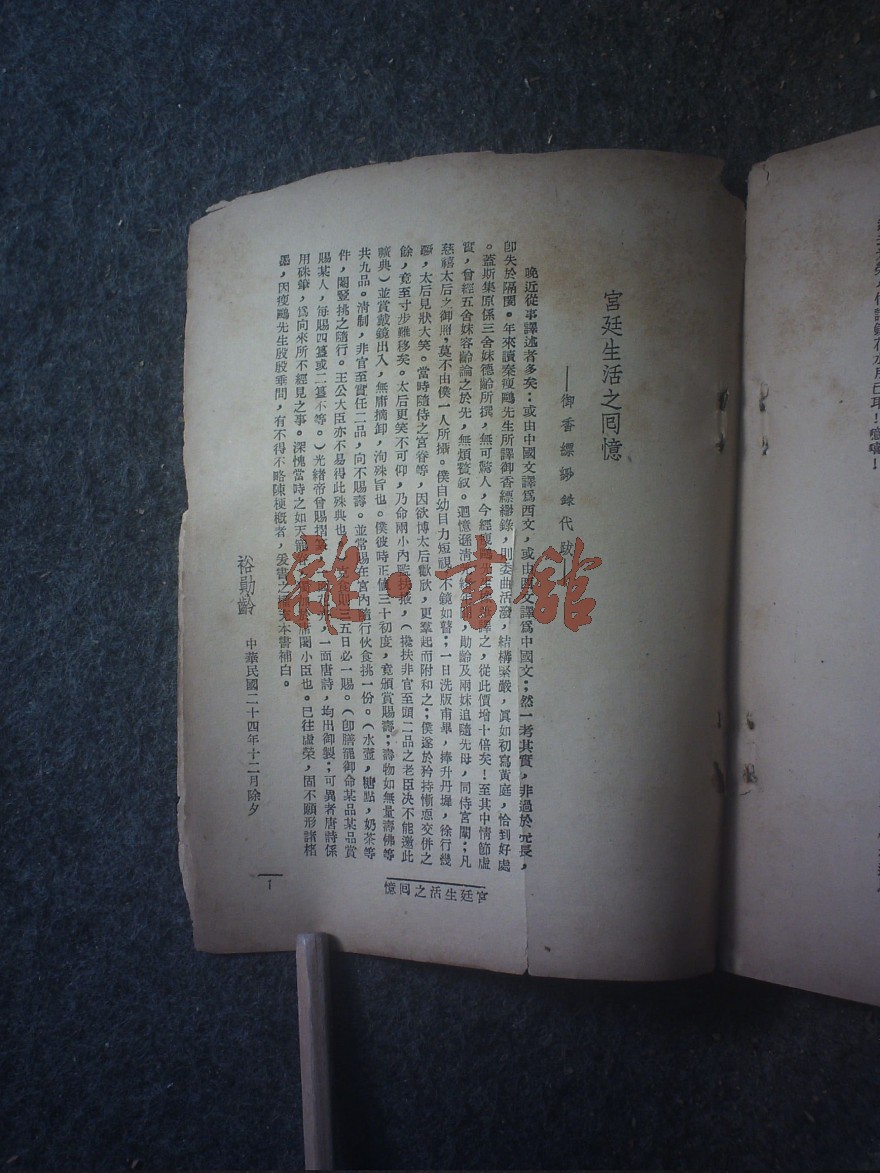 宮廷生活之囘憶
——御香縹緲錄代跋——
晚近從事譯述者多矣：或由中國文譯爲西文，或由西文譯爲中國文；然一考其實，非過於冗長，
卽失於隔閡。年來讀秦瘦鷗先生所譯御香縹緲錄，則委曲活潑，結構緊嚴，眞如初寫黃庭，恰到好處
。蓋斯集原係三舍妹德齡所撰，無可驚人，今經瘦鷗先生譯之，從此價增十倍矣！至其中情節虛
實，曾經五舍妹容齡論之於先，無煩贅叙。迴憶遜清光緒年間，勛齡及兩妹追隨先母，同侍宮闈；凡
慈禧太后之御照，莫不由僕一人所攝。僕自幼目力短視，不鏡如瞽；一日洗版甫畢，捧升丹墀，徐行幾
蹶，太后見狀大笑。當時隨侍之宮眷等，因欲博太后歡欣，更羣起而附和之；僕遂於矜持慚恧交併之
餘，竟至寸步難移矣。太后更笑不可仰，乃命兩小內監扶掖，（攙扶非官至頭二品之老臣决不能邀此
曠典）並賞戴鏡出入，無庸摘卸，洵殊旨也。僕彼時正値三十初度，竟頒賞賜壽；壽物如無量壽佛等
共九品。清制，非官至實任二品，向不賜壽。並常賜在宮內隨行伙食挑一份。（水壺，糖點，奶茶等
件，閹豎挑之隨行。王公大臣亦不易得此殊典也。）食則三五日必一賜。（卽膳罷御命某品某品賞
賜某人，每賜四簋或二簋不等。）光緒帝曾賜摺扇，一面唐詩，均出御製；可異者唐詩係
用硃筆，爲向來所不經見之事。深愧當時之如天寵小臣也。已往虛榮，固不願形諸楮
墨，因瘦鷗先生殷殷垂問，有不得不略陳梗概者，爰書之本書補白。
裕勛齡 中華民國二十四年十二月除夕
宮廷生活之囘憶
1
雜·書館